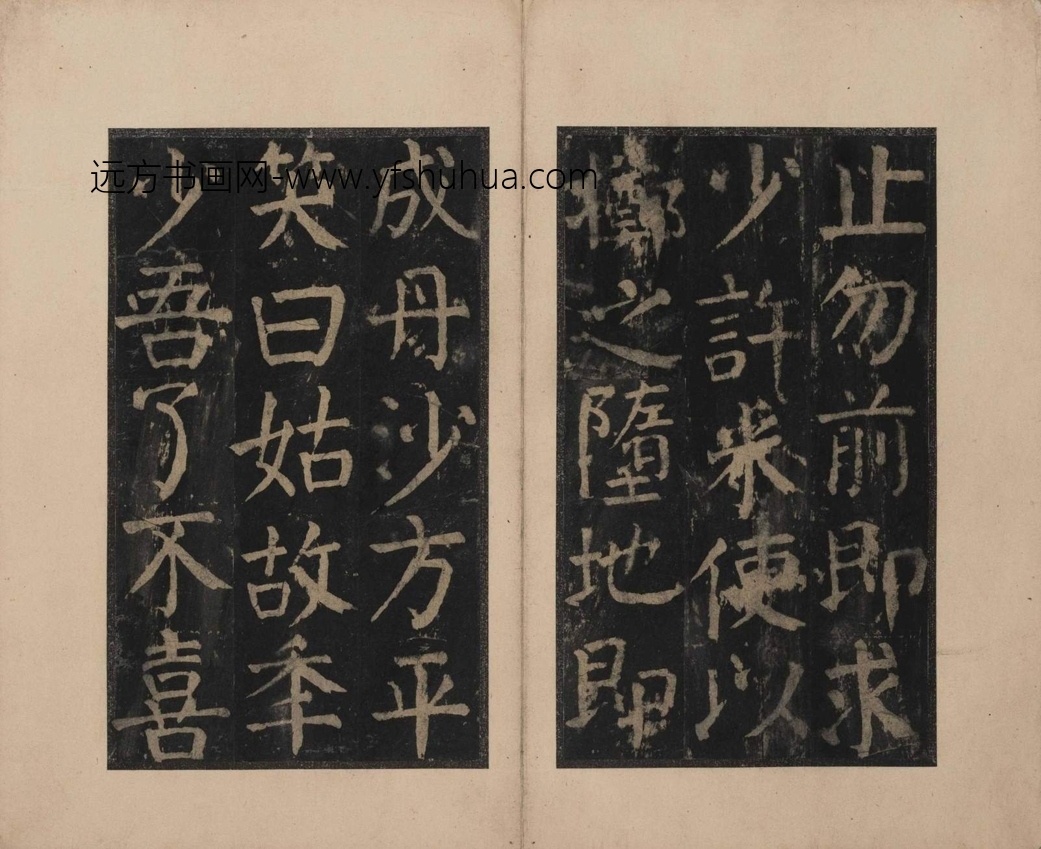 止勿前即求
少許米使以
擲之墮地即
成丹沙方平
笑曰姑故秊
少吾了不喜
远方书画网-www.yfshuhua.com